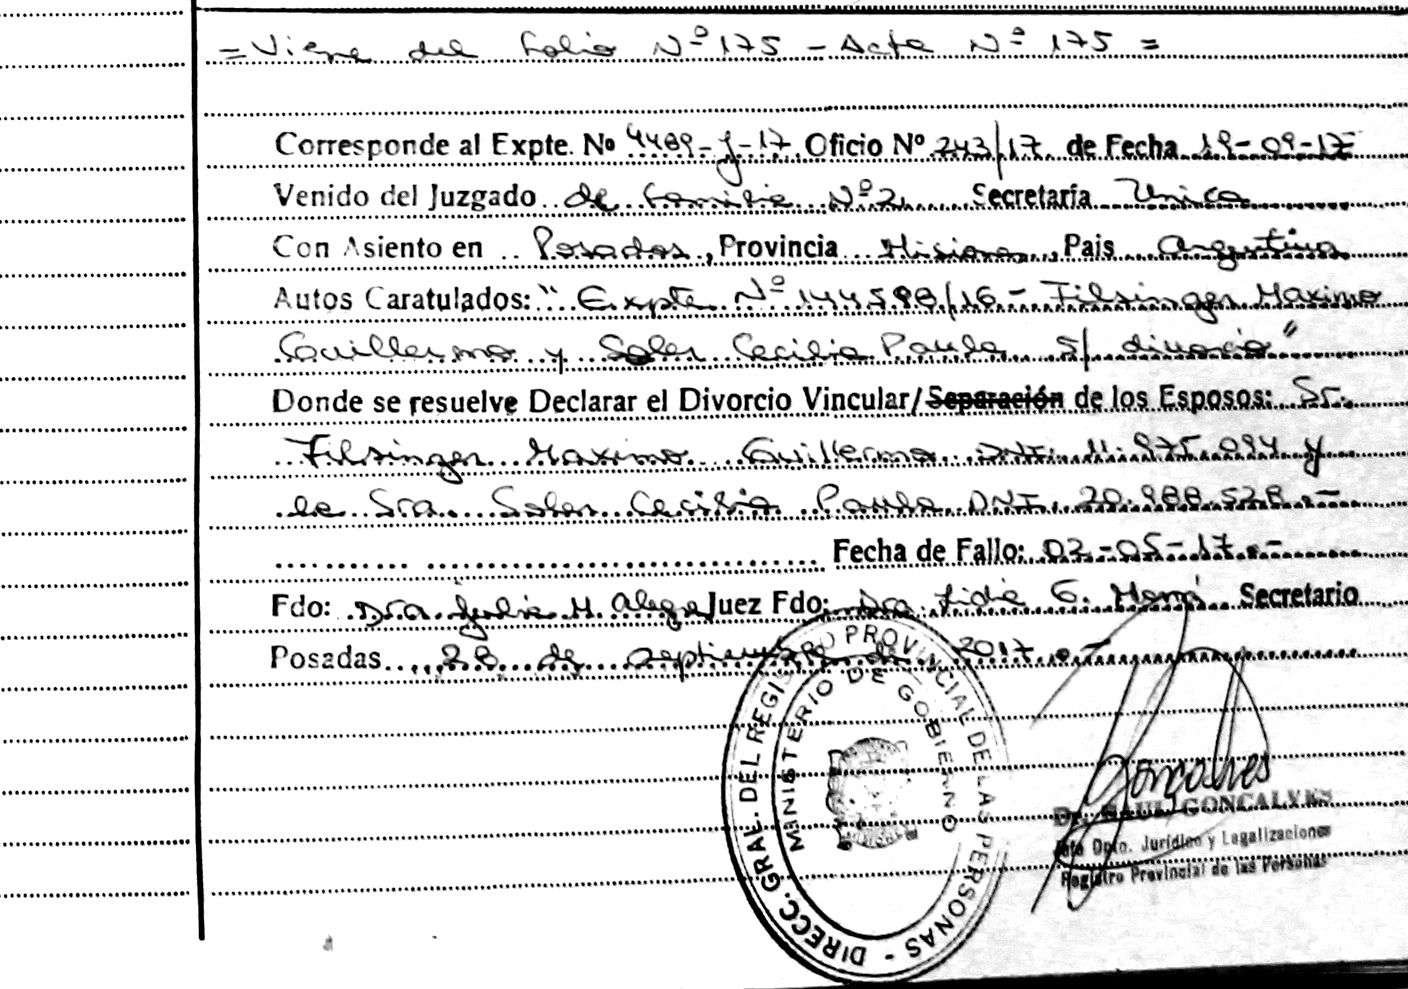 = Viene del folio Nº 175 - Acta Nº 175 =
Corresponde al Expte. Nº 4489-J-17 Oficio Nº 243/17 de Fecha 19-09-17
Venido del Juzgado de Familia Nº 2 Secretaría Unica
Con Asiento en Posadas, Provincia Misiones, Pais Argentina
Autos Caratulados: "Expte Nº 144598/16 - Filsinger Maximo
Guillermo y Soler Cecilia Paula s/ divorcio"
Donde se resuelve Declarar el Divorcio Vincular/Separación de los Esposos: Sr.
Filsinger Maximo Guillermo DNI 11.975.094 y
la Sra. Soler Cecilia Paula DNI 20.988.528.-
Fecha de Fallo: 02-05-17.-
Fdo: Dra Julia H. Alegre Juez Fdo: Dra Lidia G. Secretario
Posadas, 28 de septiembre de 2017.-
DIRECC. GRAL. DEL REGISTRO PROVINCIAL DE LAS PERSONAS -
MINISTERIO DE GOBIERNO
Goncalves
Dr. SAUL GONCALVES
Jefe Dpto. Jurídico y Legalizaciones
Registro Provincial de las Personas